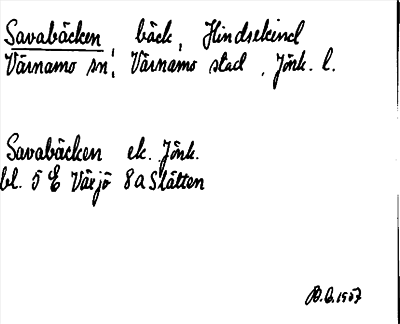 Savabäcken, bäck, Hindsekind
Värnamo sn, Värnamo stad, Jönk. l.
Savabäcken ek. Jönk.
bl. 5 E Växjö 8 a Slätten
1957